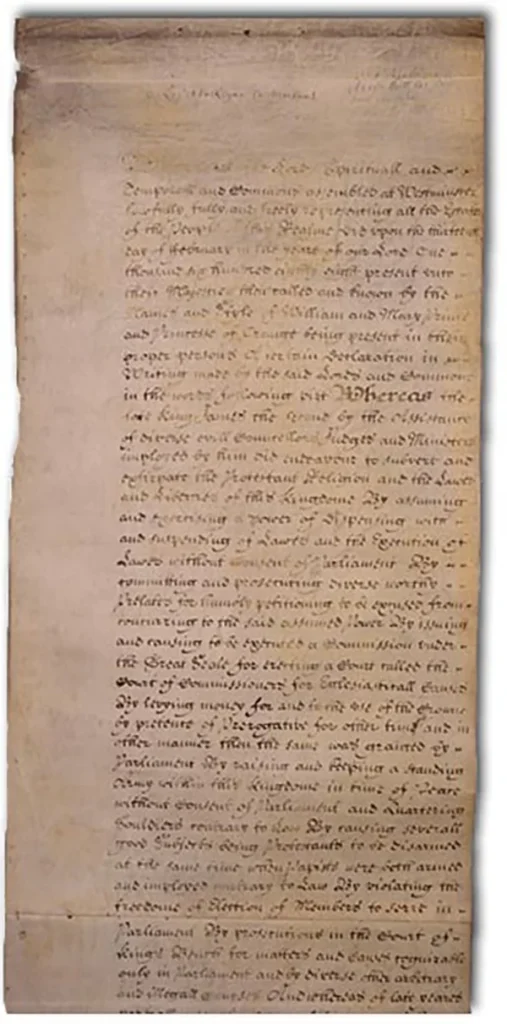 the Lords Spirituall and
Temporall and Comons assembled at Westminster
lawfully fully and freely representing all the Estates
of the People of this Realme did upon the thirteenth
day of February in the yeare of our Lord One
thousand six hundred eighty eight present unto
their Majesties then called and known by the
Names and Style of William and Mary Prince
and Princesse of Orange being present in their
proper persons A certain Declaration in
Writing made by the said Lords and Comons
in the words following viz Whereas the
late King James the second by the Assistance
of diverse evill Councellors Judges and Ministers
imployed by him did endeavour to subvert and
extirpate the Protestant Religion and the Lawes
and Liberties of this Kingdome By assuming
and exercising a power of Dispensing with
and suspending of Lawes and the Execution of
Lawes without Consent of Parliament By
committing and prosecuting diverse worthy
Prelates for humbly petitioning to be excused from
concurring to the said assumed Power By issuing
and causing to be executed a Commission under
the Great Seale for erecting a Court called the
Court of Commissioners for Ecclesiasticall Causes
By levying money for and to the Use of the Crowne
by pretence of Prerogative for other time and in
other manner then the same was granted by
Parliament By raising and keeping a standing
Army within this Kingdome in time of Peace
without Consent of Parliament and Quartering
Souldiers contrary to Law By causing severall
good Subjects being Protestants to be disarmed
at the same time when Papists were both armed
and imployed contrary to Law By violating the
freedome of Election of Members to serve in
Parliament By prosecutions in the Court of
Kings Bench for matters and Causes cognizable
only in Parliament and by diverse other arbitrary
and Illegall Courses And whereas of late yeares